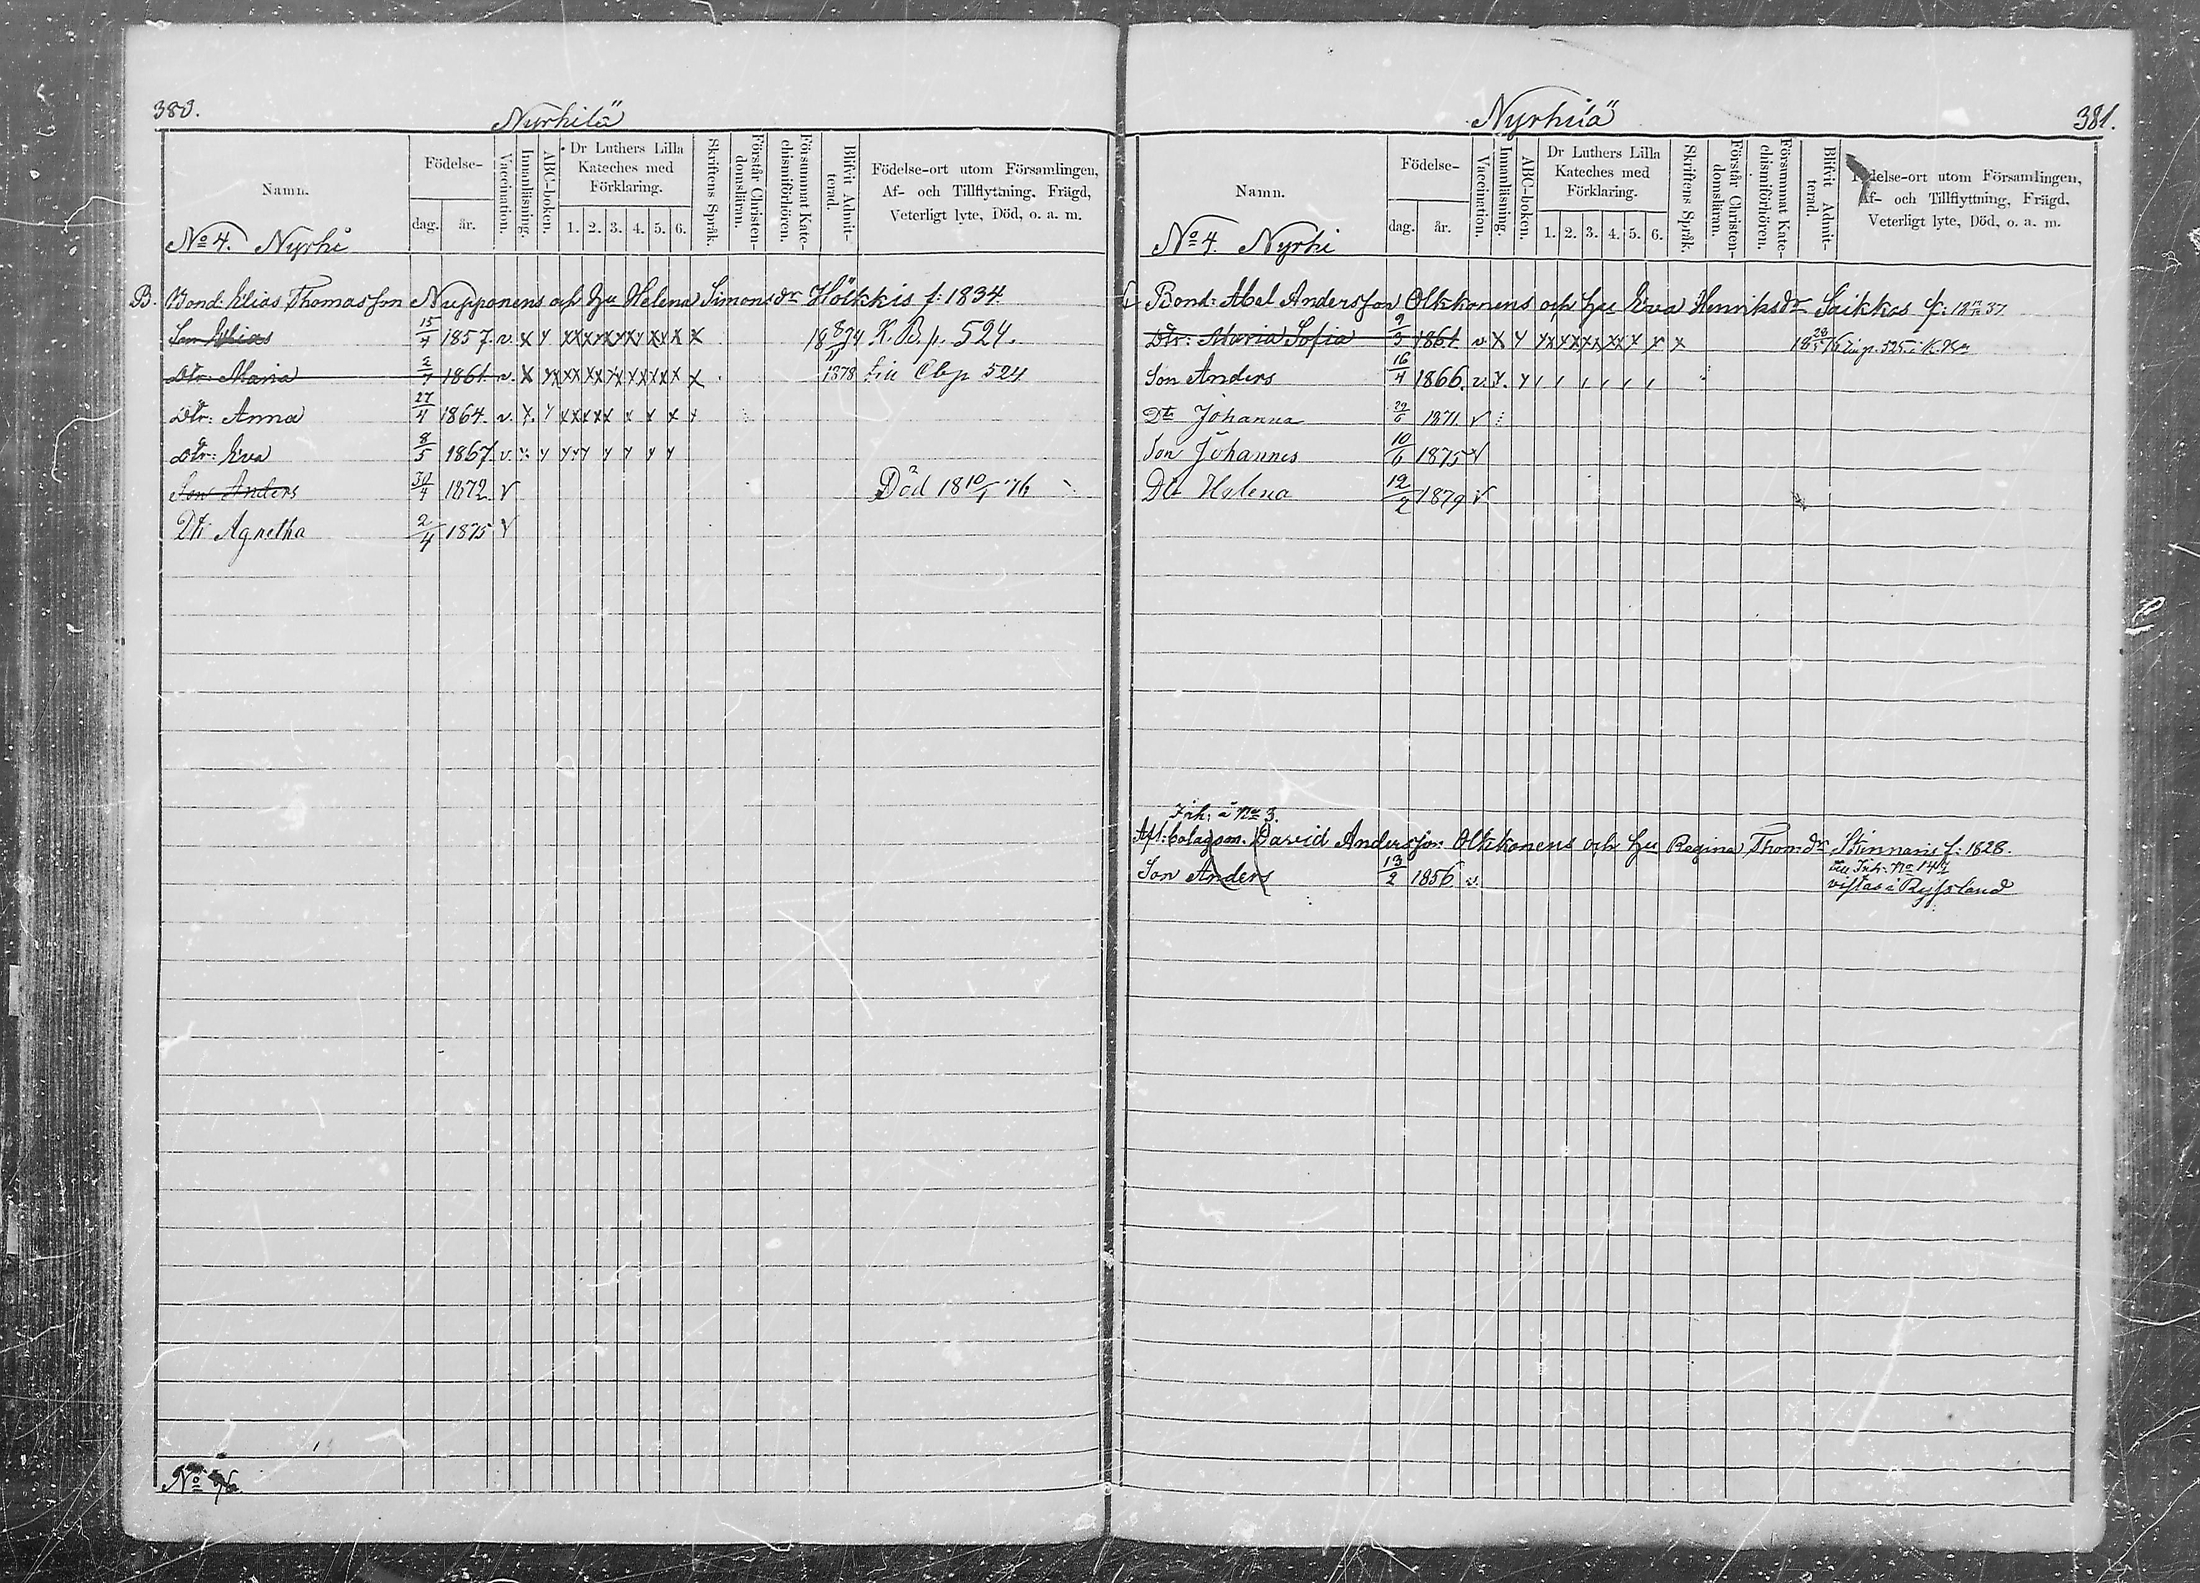 380.
Nyrhilä
Namn.
Födelse-
dag. år.
Vaccination.
Innanläsning.
ABC-boken.
Dr Luthers Lilla
Kateches med
Förklaring.
1. 2. 3. 4. 5. 6.
Skriftens Språk.
Förstår Christen-
domsläran.
Försummat Kate-
chismiförhören.
Blifvit Admit-
terad.
Födelse-ort utom Församlingen,
Af- och Tillflyttning, Frägd,
Veterligt lyte, Död, o. a. m.
No 4. Nyrhi
B. Bond: Elias Thomasson Nupponens och hu Helena Simonsdr Hölkkis f. 1834
Son Elias 15/4 1857. v. x y xxxxxxxxxx x x 18 8/11 74 K. B. p. 524.
Dtr: Maria 1861. v. x x 1878 Lu Cbp 524
Dtr: Anna 27/4 1864. v. x. y
Dtr: Eva 8/5 1867. v. x y
Son Anders 30/4 1872 v Död 18 10/1 76
Dtr Agnetha 2/4 1875 v
No
381.
Nyrhilä
Namn.
Födelse-
dag. år.
Vaccination.
Innanläsning.
ABC-boken.
Dr Luthers Lilla
Kateches med
Förklaring.
1. 2. 3. 4. 5. 6.
Skriftens Språk.
Förstår Christen-
domsläran.
Försummat Kate-
chismiförhören.
Blifvit Admit-
terad.
Födelse-ort utom Församlingen,
Af- och Tillflyttning, Frägd,
Veterligt lyte, Död, o. a. m.
No 4. Nyrhi
Bond: Abel Andersson Olkkonens och hu Eva Henriksdr Saikkos f. 37
Dtr: Maria Sofia 9/3 1861 v x y p. 525
Son Anders 16/4 1866. v. y. y
Dtr Johanna 1871 v
Son Johannes 10/6 1875 v
Dtr Helena 12/2 1879 v
Inh: å No 3.
Afl: bolagsm. David Andersson Olkkonens och hu Regina Thom:dr Stinnaris f. 1828.
Son Anders 13/2 1856 v. till Inh: No
vistas i Ryssland